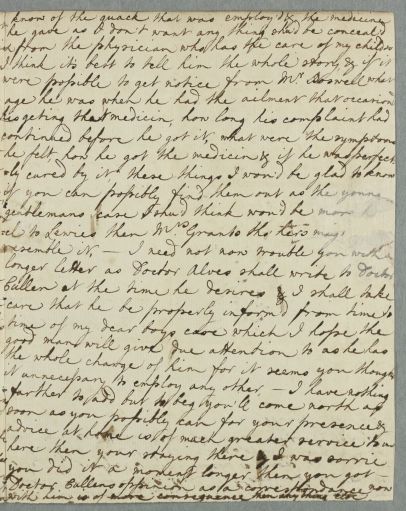 know of the quack that was employ'd & the medicine
he gave as I don't want any thing shou'd be conceal'd
from the physician who has the care of my child so
I think its best to tell him the whole story, & if it
were possible to get notice from Mr. Boswell what
age he was when he had the ailment that occasion'd
his getting that medicin, how long his complaint had
continued before he got it, what were the symptoms
he felt, how he got the medicin & if he was perfect
ly cured by it these things I wou'd be glad to know
if you can possibly find them out as the young
gentlemans case I shud think wou'd be more
to Lewies then Mrs Grants tho this may
resemble it, — I need not now trouble you with a
longer letter as Doctor Alves shall write to Doctor
Cullen at the time he desires & I shall take
care that he be properly inform'd from time to
time of my dear boys case which I hope the
good man will give due attention to as he has
the whole charge of him for it seems you thought
it unnecessary to employ any other, — I have nothing
farther to ad but to beg you'll come north as
soon as you possibly can for your presence &
advice at home is of much greater service to us
here then your staying there & I was sorrie
you did it a moment longer then you got
Doctor Cullens oppinion as a correspondance now
with him is of more consequence then any thing else